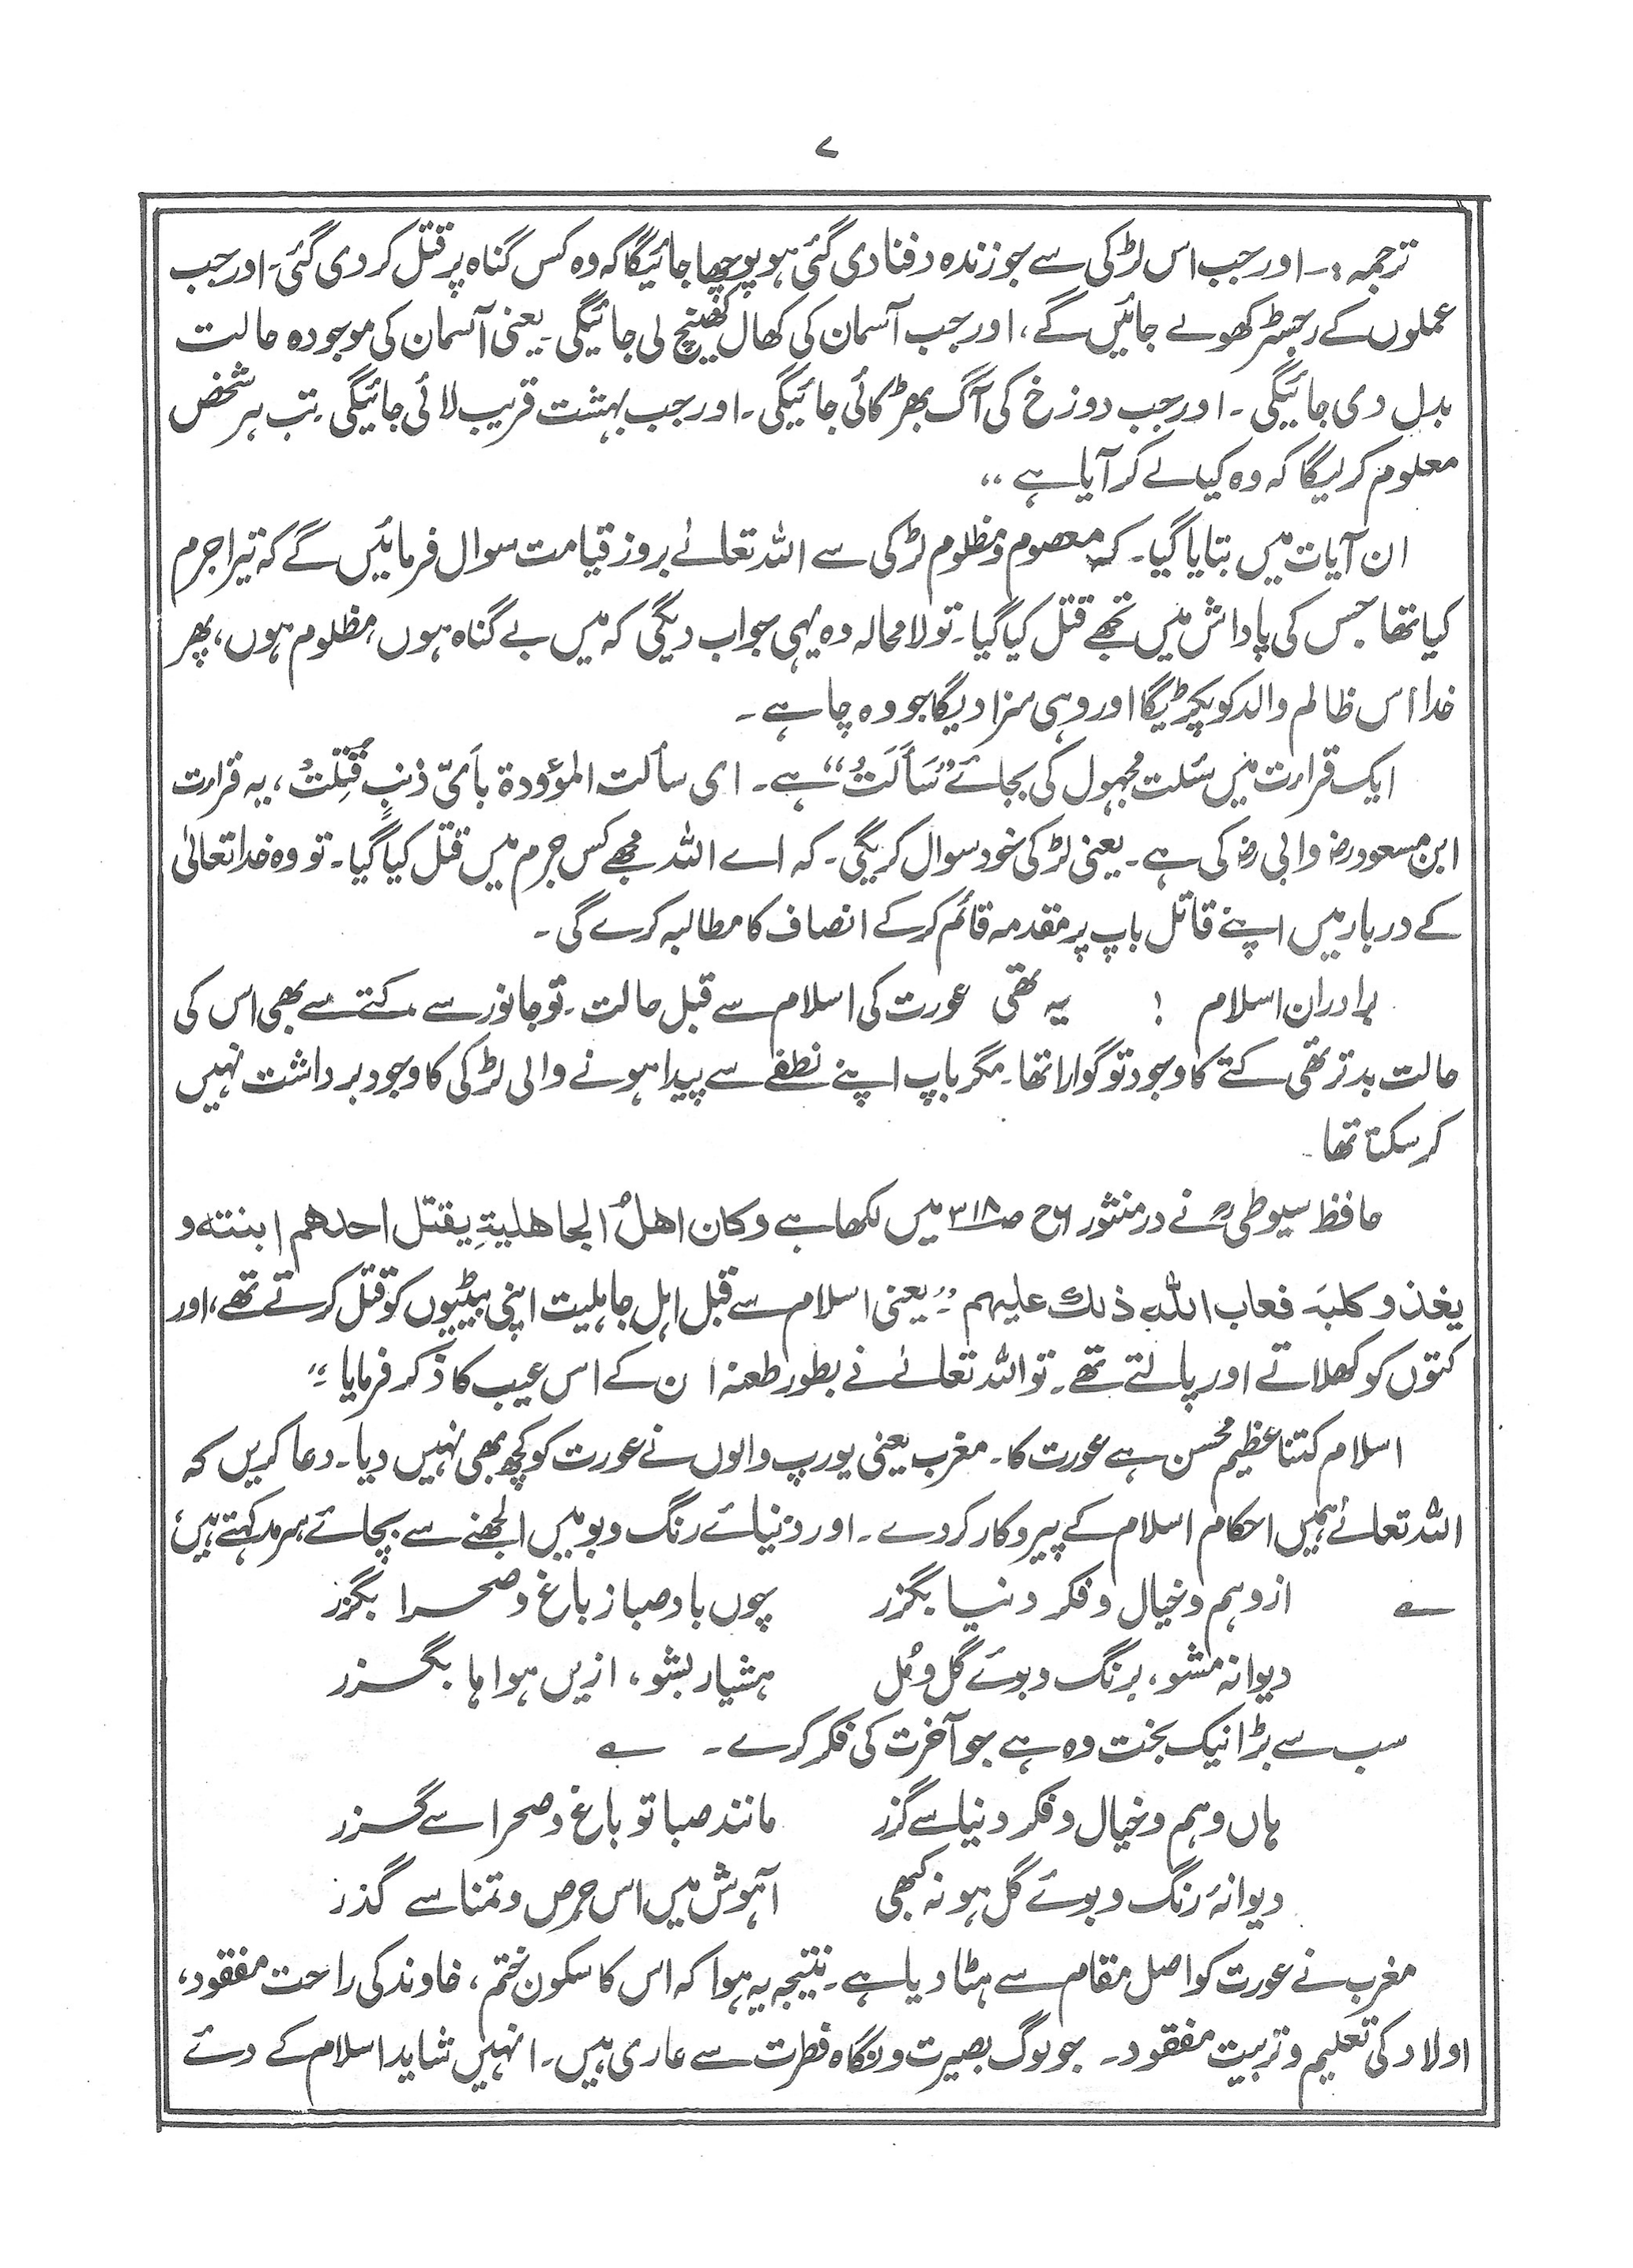 ۷
ترجمہ:۔ اور جب اس لڑکی سے جو زندہ دفنا دی گئی ہو پوچھا جائیگا کہ وہ کس گناہ پر قتل کر دی گئی۔ اور جب
عملوں کے رجسٹر کھولے جائیں گے، اور جب آسمان کی کھال کھینچ لی جائیگی۔ یعنی آسمان کی موجودہ حالت
بدل دی جائیگی۔ اور جب دوزخ کی آگ بھڑکائی جائیگی۔ اور جب بہشت قریب لائی جائیگی۔ تب ہر شخص
معلوم کر لیگا کہ وہ کیا لے کر آیا ہے ،،
ان آیات میں بتایا گیا۔ کہ معصوم و مظلوم لڑکی سے اللہ تعالےٰ بروز قیامت سوال فرمائیں گے کہ تیرا جرم
کیا تھا جس کی پاداش میں تجھے قتل کیا گیا۔ تو لا محالہ وہ یہی جواب دیگی کہ میں بے گناہ ہوں، مظلوم ہوں، پھر
خدا اُس ظالم والد کو پکڑیگا اور وہی سزا دیگا جو وہ چاہے۔
ایک قرارت میں سُئلت مجہول کی بجائے ”سَأَلَتْ“ ہے۔ ای سألت المؤودة بأیّ ذنبٍ قُتِلتُ، یہ قرارت
ابن مسعودؓ و ابیؓ کی ہے۔ یعنی لڑکی خود سوال کریگی۔ کہ اے اللہ مجھے کس جرم میں قتل کیا گیا۔ تو وہ خدا تعالیٰ
کے دربار میں اپنے قاتل باپ پر مقدمہ قائم کر کے انصاف کا مطالبہ کرے گی۔
برادران اسلام ! یہ تھی عورت کی اسلام سے قبل حالت۔ تو جانور سے کتے سے بھی اس کی
حالت بدتر تھی کتے کا وجود تو گوارا تھا۔ مگر باپ اپنے نطفے سے پیدا ہونے والی لڑکی کا وجود برداشت نہیں
کر سکتا تھا۔
حافظ سیوطیؒ نے درمنثور ج۶ ص۳۱۸ میں لکھا ہے وکان اھلُ الجاھلیةِ یقتل احدھم ابنتہ و
یغذو کلبہَ فعاب اللہ ذلک علیہم ۔“ یعنی اسلام سے قبل اہل جاہلیت اپنی بیٹیوں کو قتل کرتے تھے، اور
کتوں کو کھلاتے اور پالتے تھے۔ تو اللہ تعالےٰ نے بطور طعنہ ان کے اس عیب کا ذکر فرمایا ۔“
اسلام کتنا عظیم محسن ہے عورت کا۔ مغرب یعنی یورپ والوں نے عورت کو کچھ بھی نہیں دیا۔ دعا کریں کہ
اللہ تعالےٰ ہمیں احکام اسلام کے پیروکار کر دے۔ اور دنیائے رنگ و بو میں الجھنے سے بچائے سرمد کہتے ہیں
؎ از وہم و خیال و فکر دنیا بگزر چوں باد صبا ز باغ و صحرا بگزر
دیوانہ مشو، برنگ و بوئے گل و مُل ہشیار بشو، ازیں ہوا ہا بگزر
سب سے بڑا نیک بخت وہ ہے جو آخرت کی فکر کرے۔ ؎
ہاں وہم و خیال و فکر دنیا سے گزر مانند صبا تو باغ و صحرا سے گزر
دیوانۂ رنگ و بوئے گل ہو نہ کبھی آ ہوش میں اس حرص و تمنا سے گذر
مغرب نے عورت کو اصل مقام سے ہٹا دیا ہے۔ نتیجہ یہ ہوا کہ اس کا سکون ختم، خاوند کی راحت مفقود،
اولاد کی تعلیم و تربیت مفقود۔ جو لوگ بصیرت و نگاہ فطرت سے عاری ہیں۔ انہیں شاید اسلام کے دئے